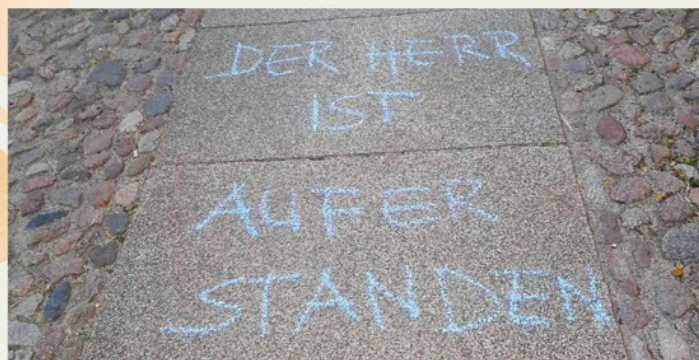 DER HERR
IST
AUFER
STANDEN